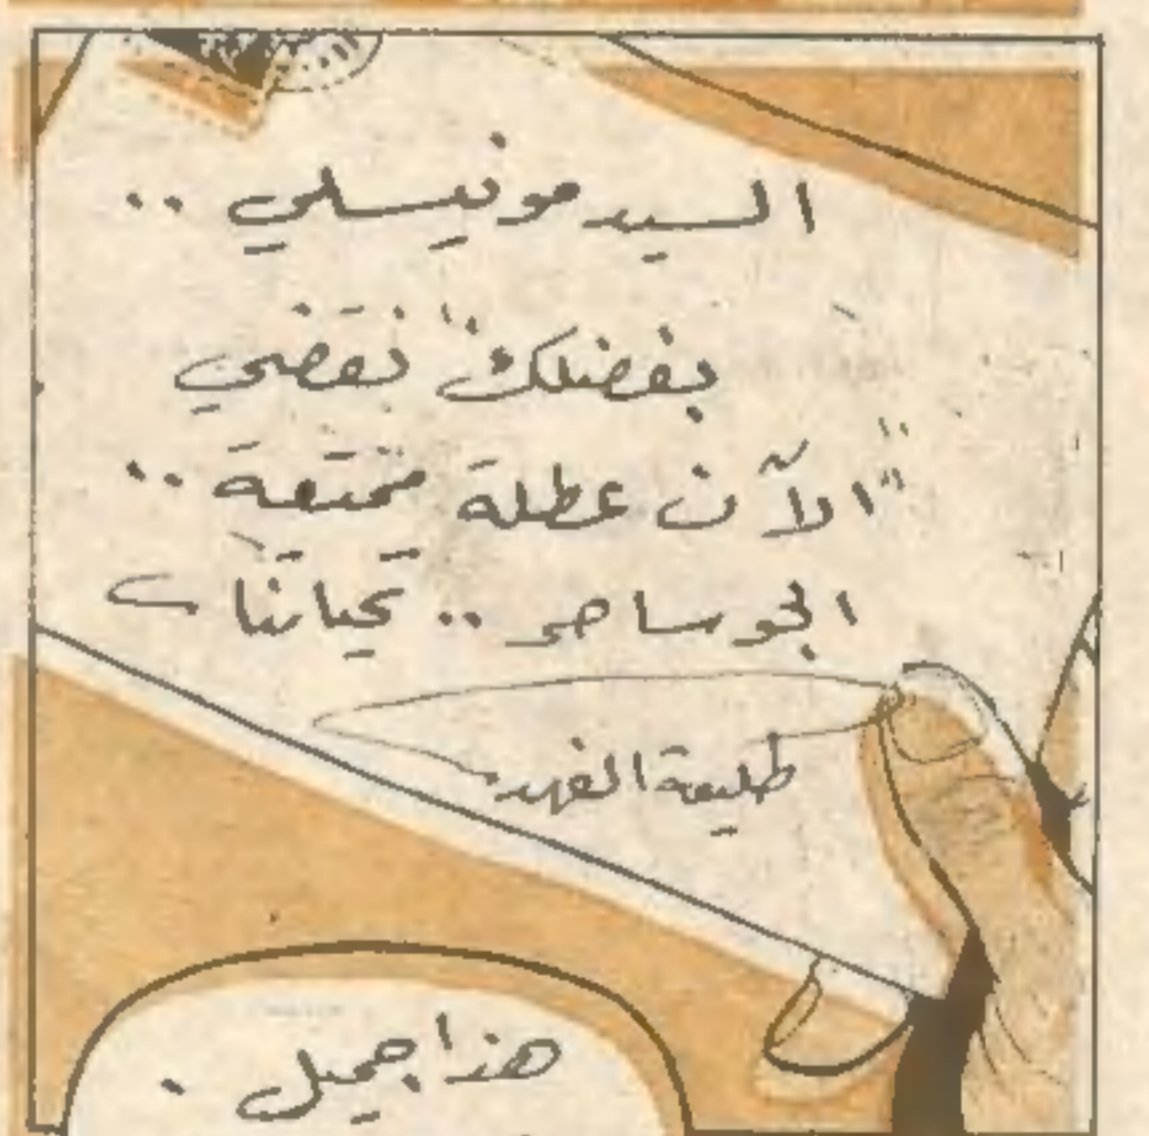 السيد مونيسلي ..
بفضلك نقضي
الآن عطلة ممتعة ..
الجو ساحر .. تحياتنا
طليعة الفهد
هذا جميل .